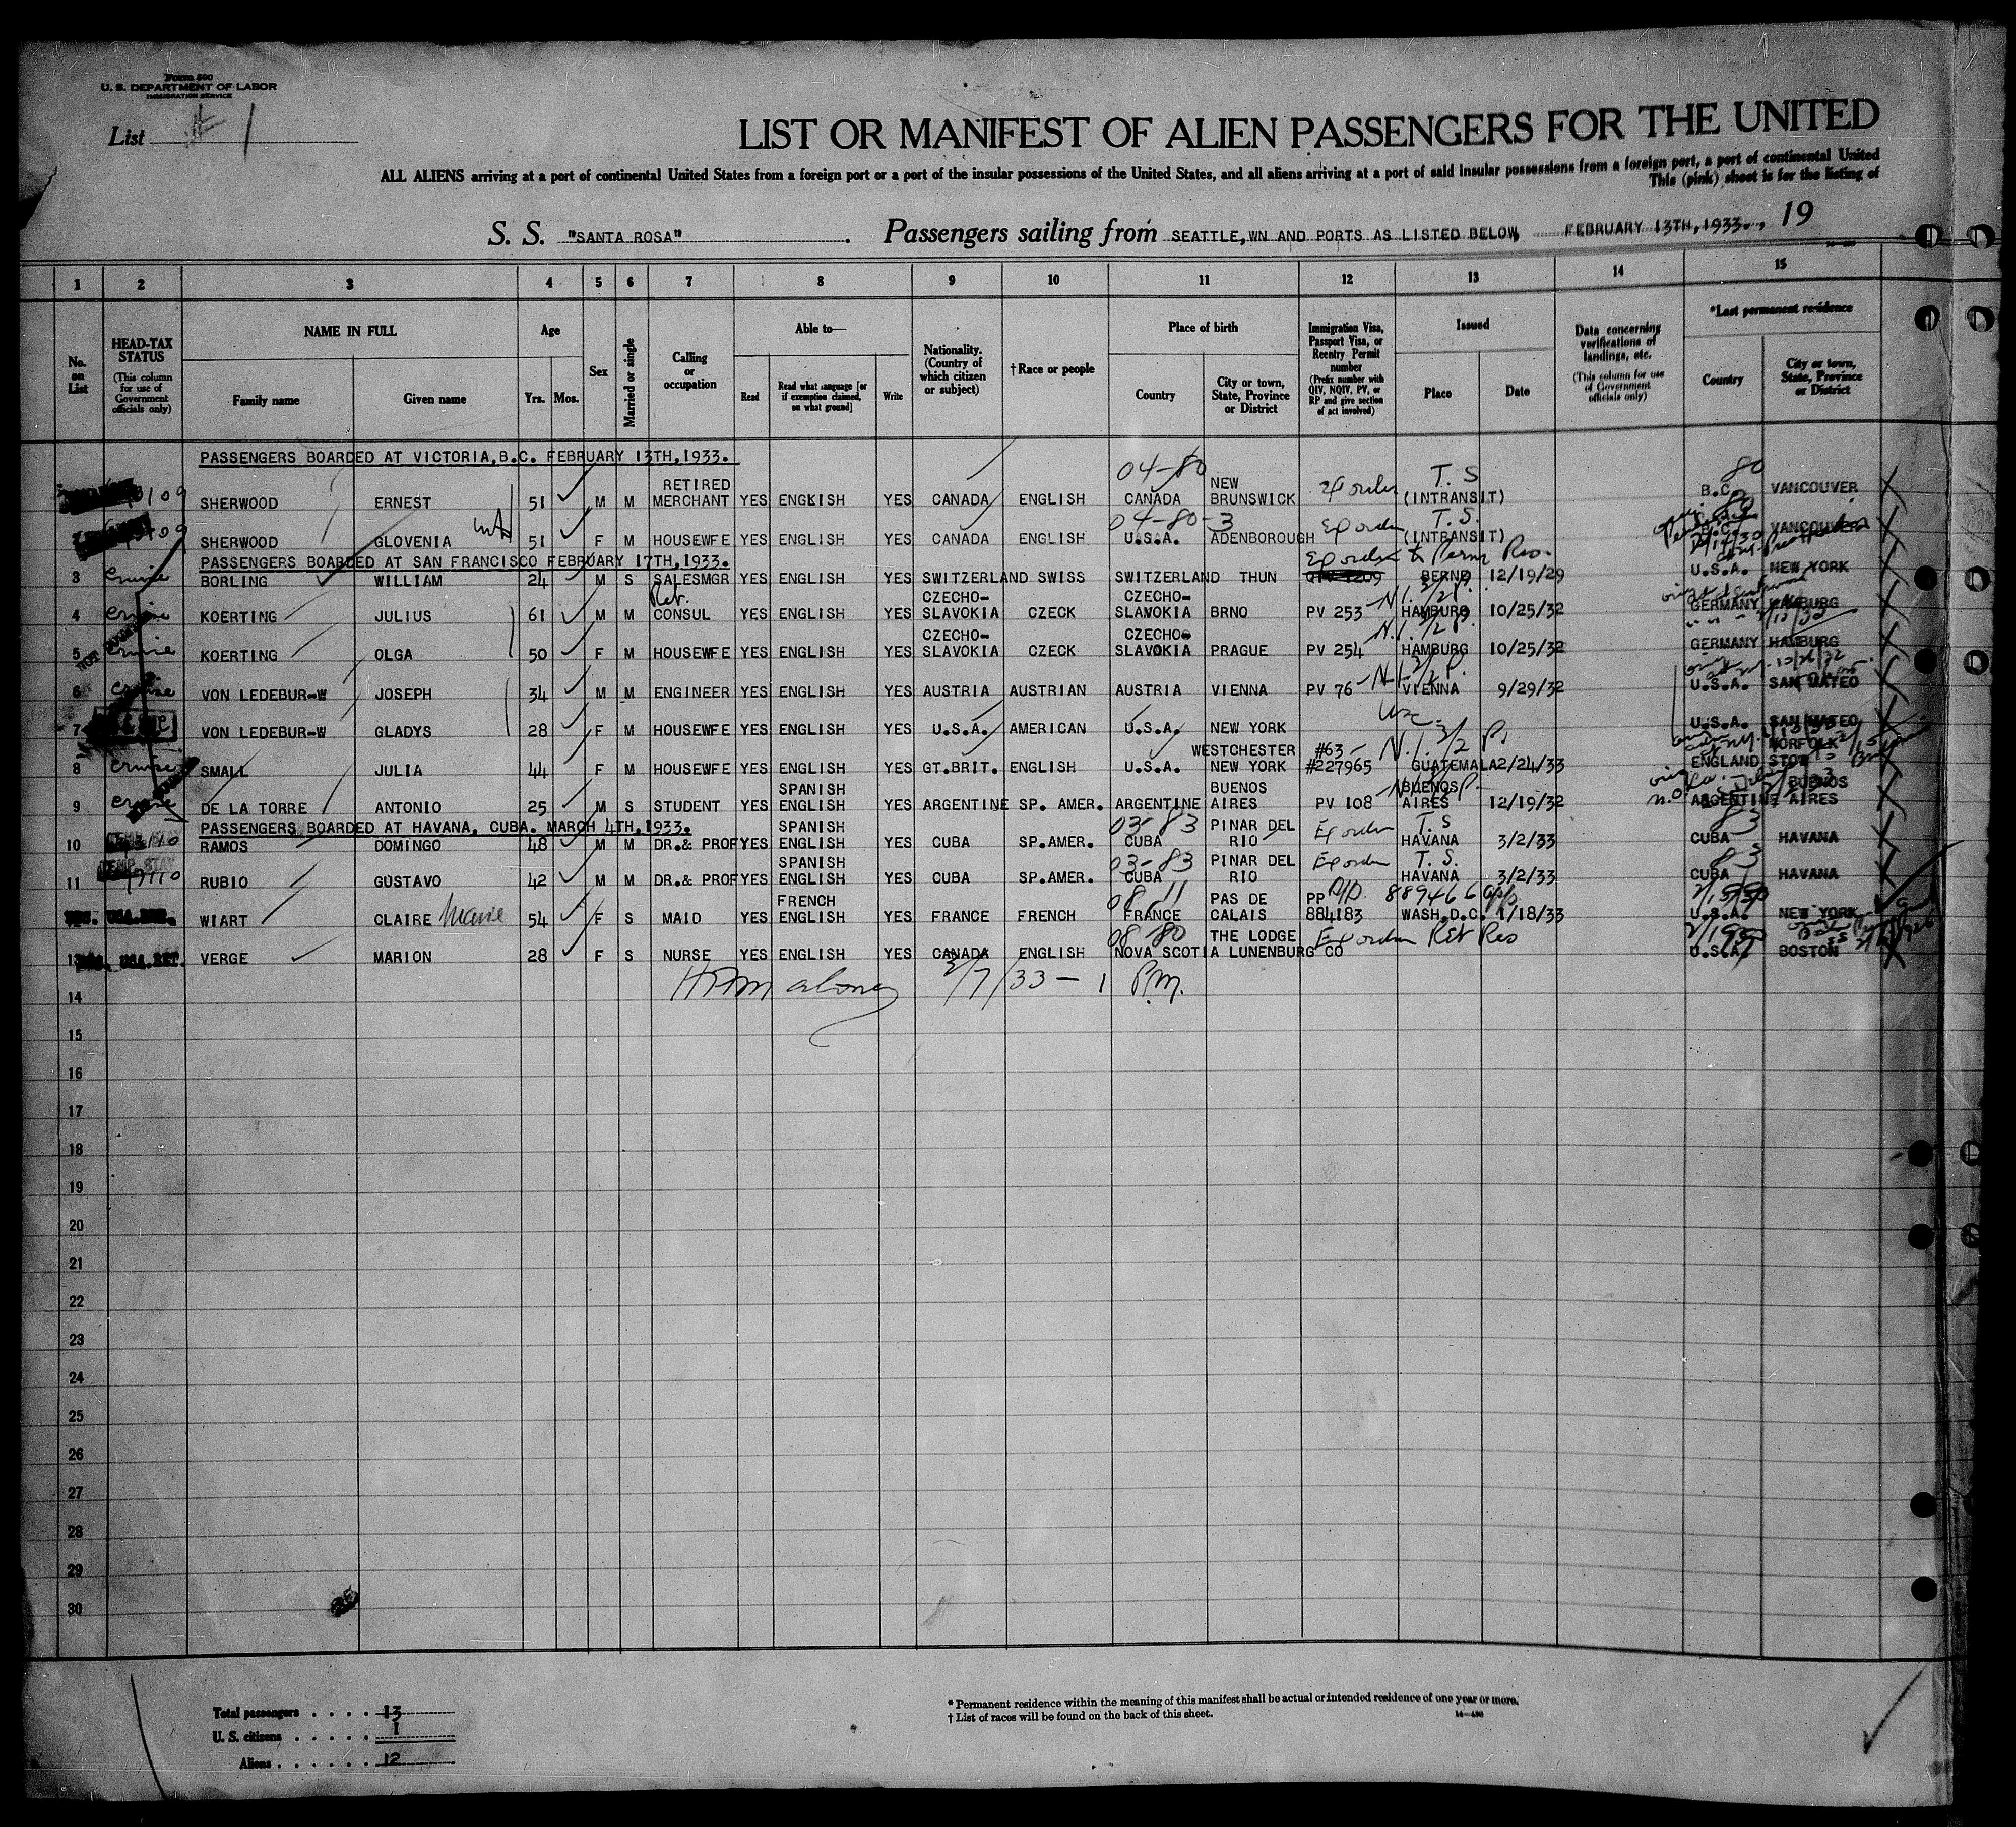 Form 500
U. S. DEPARTMENT OF LABOR
IMMIGRATION SERVICE
List # 1
LIST OR MANIFEST OF ALIEN PASSENGERS FOR THE UNITED
ALL ALIENS arriving at a port of continental United States from a foreign port or a port of the insular possessions of the United States, and all aliens arriving at a port of said insular possessions from a foreign port, a port of continental United
This (pink) sheet is for the listing of
S. S. "SANTA ROSA" . Passengers sailing from SEATTLE,WN AND PORTS AS LISTED BELOW FEBRUARY 13TH,1933. , 19
1 2 3 4 5 6 7 8 9 10 11 12 13 14 15
No. on List
HEAD-TAX STATUS
(This column for use of Government officials only)
NAME IN FULL
Family name Given name
Age
Yrs. Mos.
Sex
Married or single
Calling or occupation
Able to—
Read Read what language [or if exemption claimed, on what ground] Write
Nationality. (Country of which citizen or subject)
†Race or people
Place of birth
Country City or town, State, Province or District
Immigration Visa, Passport Visa, or Reentry Permit number
(Prefix number with QIV, NQIV, PV, or RP and give section of act involved)
Issued
Place Date
Data concerning verifications of landings, etc.
(This column for use of Government officials only)
*Last permanent residence
Country City or town, State, Province or District
PASSENGERS BOARDED AT VICTORIA,B.C. FEBRUARY 13TH,1933.
SHERWOOD ERNEST 51 M M RETIRED MERCHANT YES ENGKISH YES CANADA ENGLISH 04-80 CANADA NEW BRUNSWICK T. S (INTRANSIT) 80 B.C. VANCOUVER
SHERWOOD GLOVENIA 51 F M HOUSEWFE YES ENGLISH YES CANADA ENGLISH 04-80-3 U.S.A. ADENBOROUGH T.S. (INTRANSIT) VANCOUVER
PASSENGERS BOARDED AT SAN FRANCISCO FEBRUARY 17TH,1933.
3 cruise BORLING WILLIAM 24 M S SALESMGR YES ENGLISH YES SWITZERLAND SWISS SWITZERLAND THUN BERNE 12/19/29 U.S.A. NEW YORK
4 cruise KOERTING JULIUS 61 M M Ret. CONSUL YES ENGLISH YES CZECHO-SLAVOKIA CZECK CZECHO-SLAVOKIA BRNO PV 253 HAMBURG 10/25/32 GERMANY HAMBURG
5 cruise KOERTING OLGA 50 F M HOUSEWFE YES ENGLISH YES CZECHO-SLAVOKIA CZECK CZECHO-SLAVOKIA PRAGUE PV 254 HAMBURG 10/25/32 GERMANY HAMBURG
6 cruise VON LEDEBUR-W JOSEPH 34 M M ENGINEER YES ENGLISH YES AUSTRIA AUSTRIAN AUSTRIA VIENNA PV 76 VIENNA 9/29/32 U.S.A. SAN MATEO
7 VON LEDEBUR-W GLADYS 28 F M HOUSEWFE YES ENGLISH YES U.S.A. AMERICAN U.S.A. NEW YORK U.S.A. SAN MATEO
8 cruise SMALL JULIA 44 F M HOUSEWFE YES ENGLISH YES GT.BRIT. ENGLISH U.S.A. WESTCHESTER NEW YORK #63- #227965 GUATEMALA 2/24/33 ENGLAND NORFOLK STOW
9 cruise DE LA TORRE ANTONIO 25 M S STUDENT YES SPANISH ENGLISH YES ARGENTINE SP. AMER. ARGENTINE BUENOS AIRES PV 108 BUENOS AIRES 12/19/32 ARGENTINE BUENOS AIRES
PASSENGERS BOARDED AT HAVANA, CUBA. MARCH 4TH,1933.
10 RAMOS DOMINGO 48 M M DR.& PROF YES SPANISH ENGLISH YES CUBA SP.AMER. 03-83 CUBA PINAR DEL RIO T. S HAVANA 3/2/33 83 CUBA HAVANA
TEMP. STAY
11 RUBIO GUSTAVO 42 M M DR.& PROF YES SPANISH ENGLISH YES CUBA SP.AMER. 03-83 CUBA PINAR DEL RIO T. S. HAVANA 3/2/33 83 CUBA HAVANA
WIART CLAIRE Marie 54 F S MAID YES FRENCH ENGLISH YES FRANCE FRENCH 08 11 FRANCE PAS DE CALAIS PP 884183 889466 WASH.D.C. 1/18/33 U.S.A. NEW YORK
13 VERGE MARION 28 F S NURSE YES ENGLISH YES CANADA ENGLISH 08 80 NOVA SCOTIA THE LODGE LUNENBURG CO Ret Res U.S.A. BOSTON
14 3/7/33 — 1 P.M.
15
16
17
18
19
20
21
22
23
24
25
26
27
28
29
30
Total passengers . . . . 13
U. S. citizens . . . . . 1
Aliens . . . . . . 12
* Permanent residence within the meaning of this manifest shall be actual or intended residence of one year or more.
† List of races will be found on the back of this sheet.
14—480